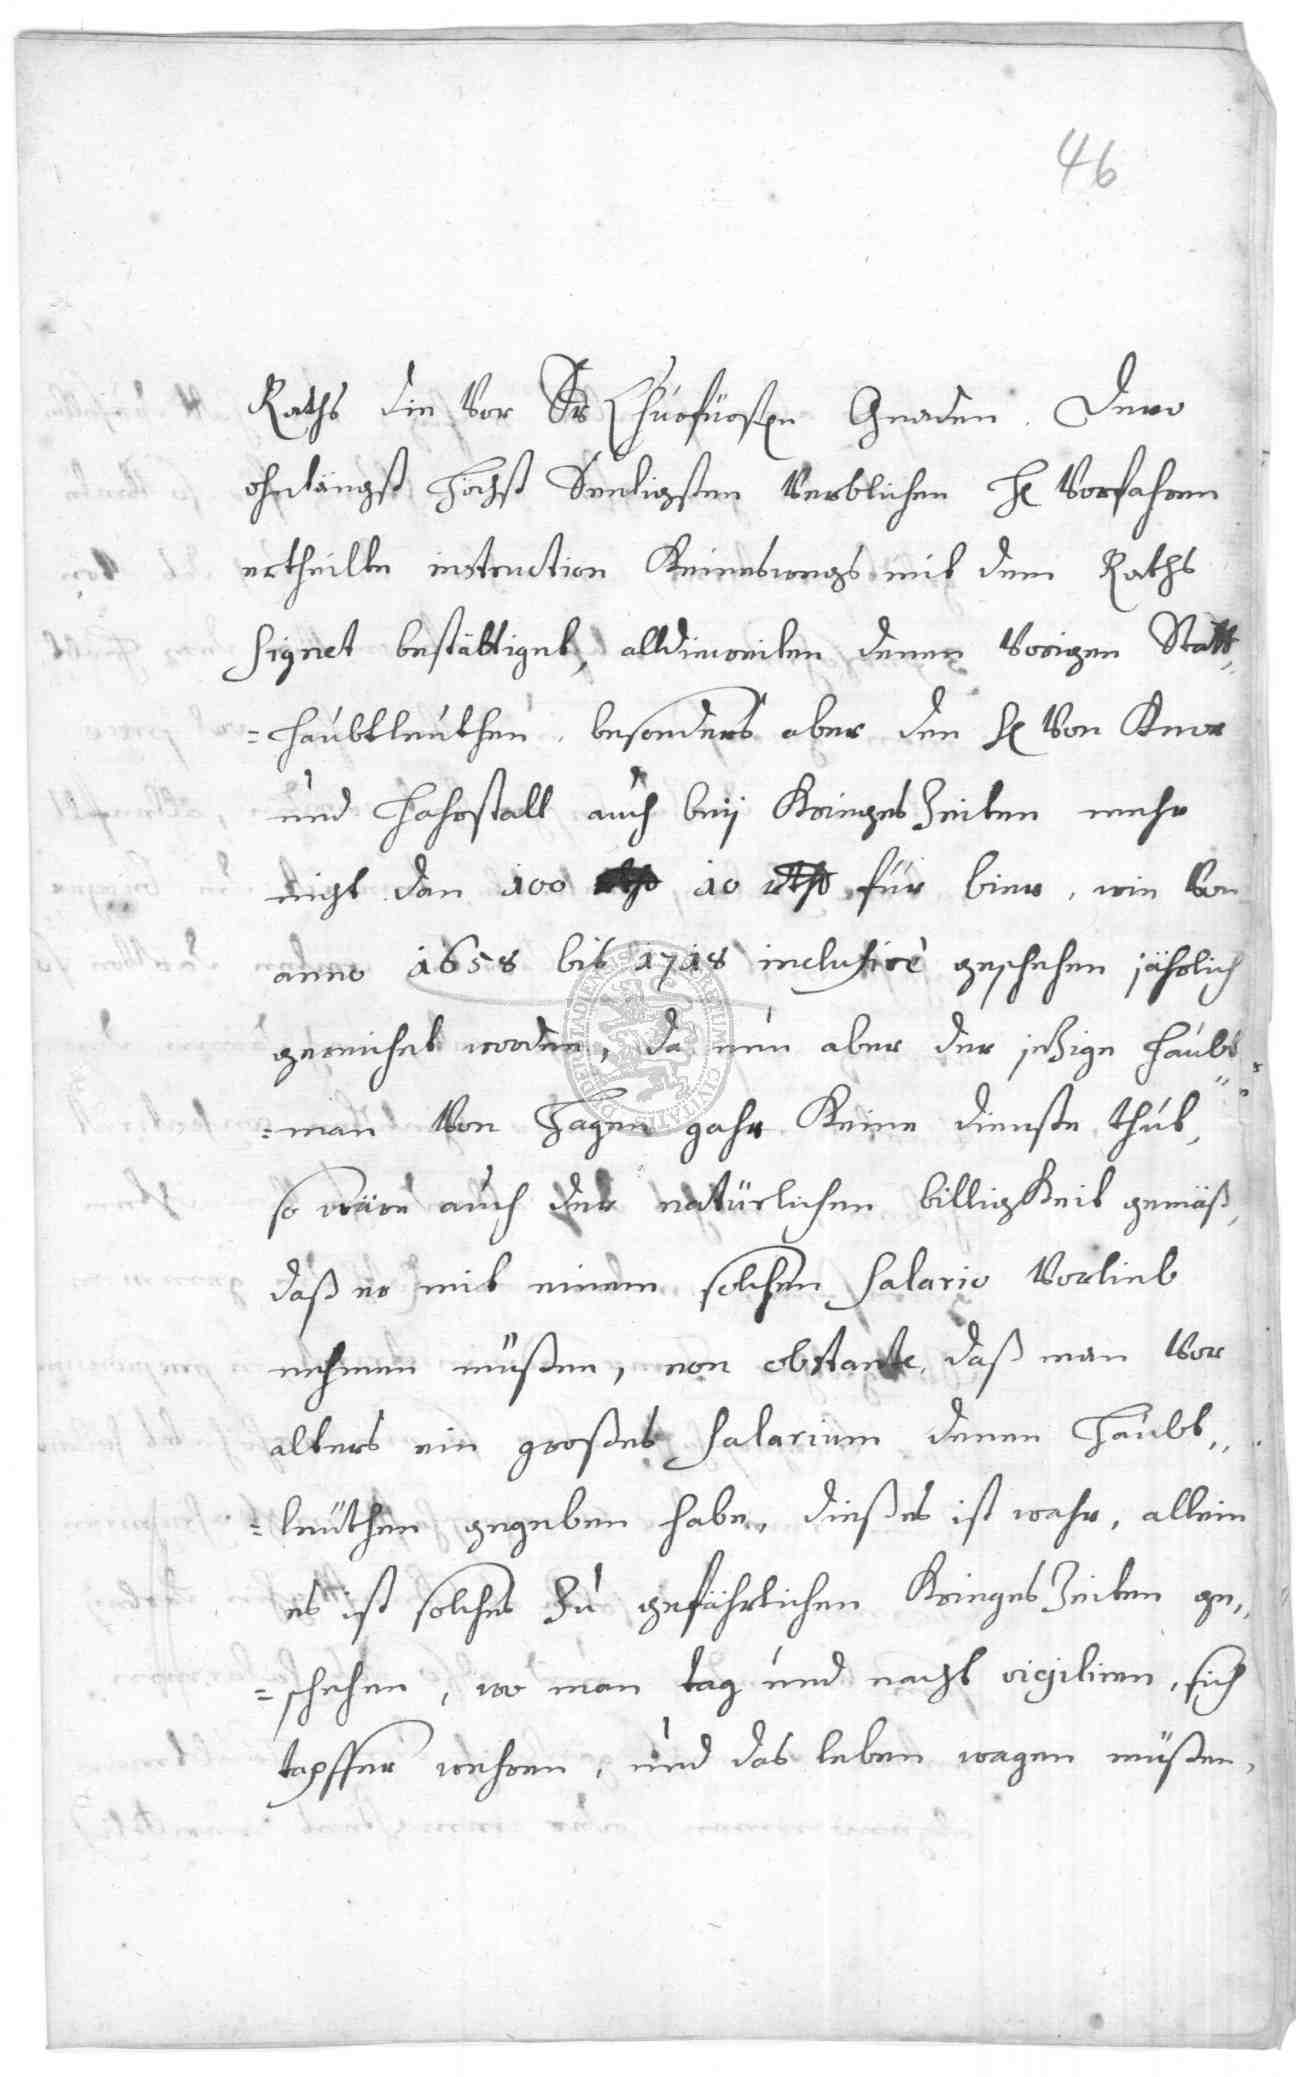 46
Raths die Vor Sr Churfürstn Gnaden Dero
ohnlängst höchst Seeligsten Verblichen H Vorfahren
ertheilte instruction Keineswegs mit dem Raths
signet bestättiget, alldieweilen denen Vorigen Statt„
=haubtleuthen, besonders aber den H Von Knor
und Hahrstall auch beÿ Krieges Zeiten mehr
nicht dan 100 10 rthr für bier, wie Von
anno 1658 bis 1718 inclusivè geschehen jährlich
gereichet worden, da nun aber der jetzige Haubt„
=man Von Hagen gahr Keine dienste thut,
so wäre auch der natürlichen billigKeit gemäß,
daß er mit einem solchen salario Vorlieb
nehmen müßen, non obstante, daß man Vor
alters ein großes salarium denen Haubt„
=leüthen gegeben habe, dießes ist wahr, allein
es ist solches Zu gefährlichen Krieges Zeiten ge„
=schehen, wo man tag und nacht vigiliren, sich
tapffer wehren, und das leben wagen müßen,